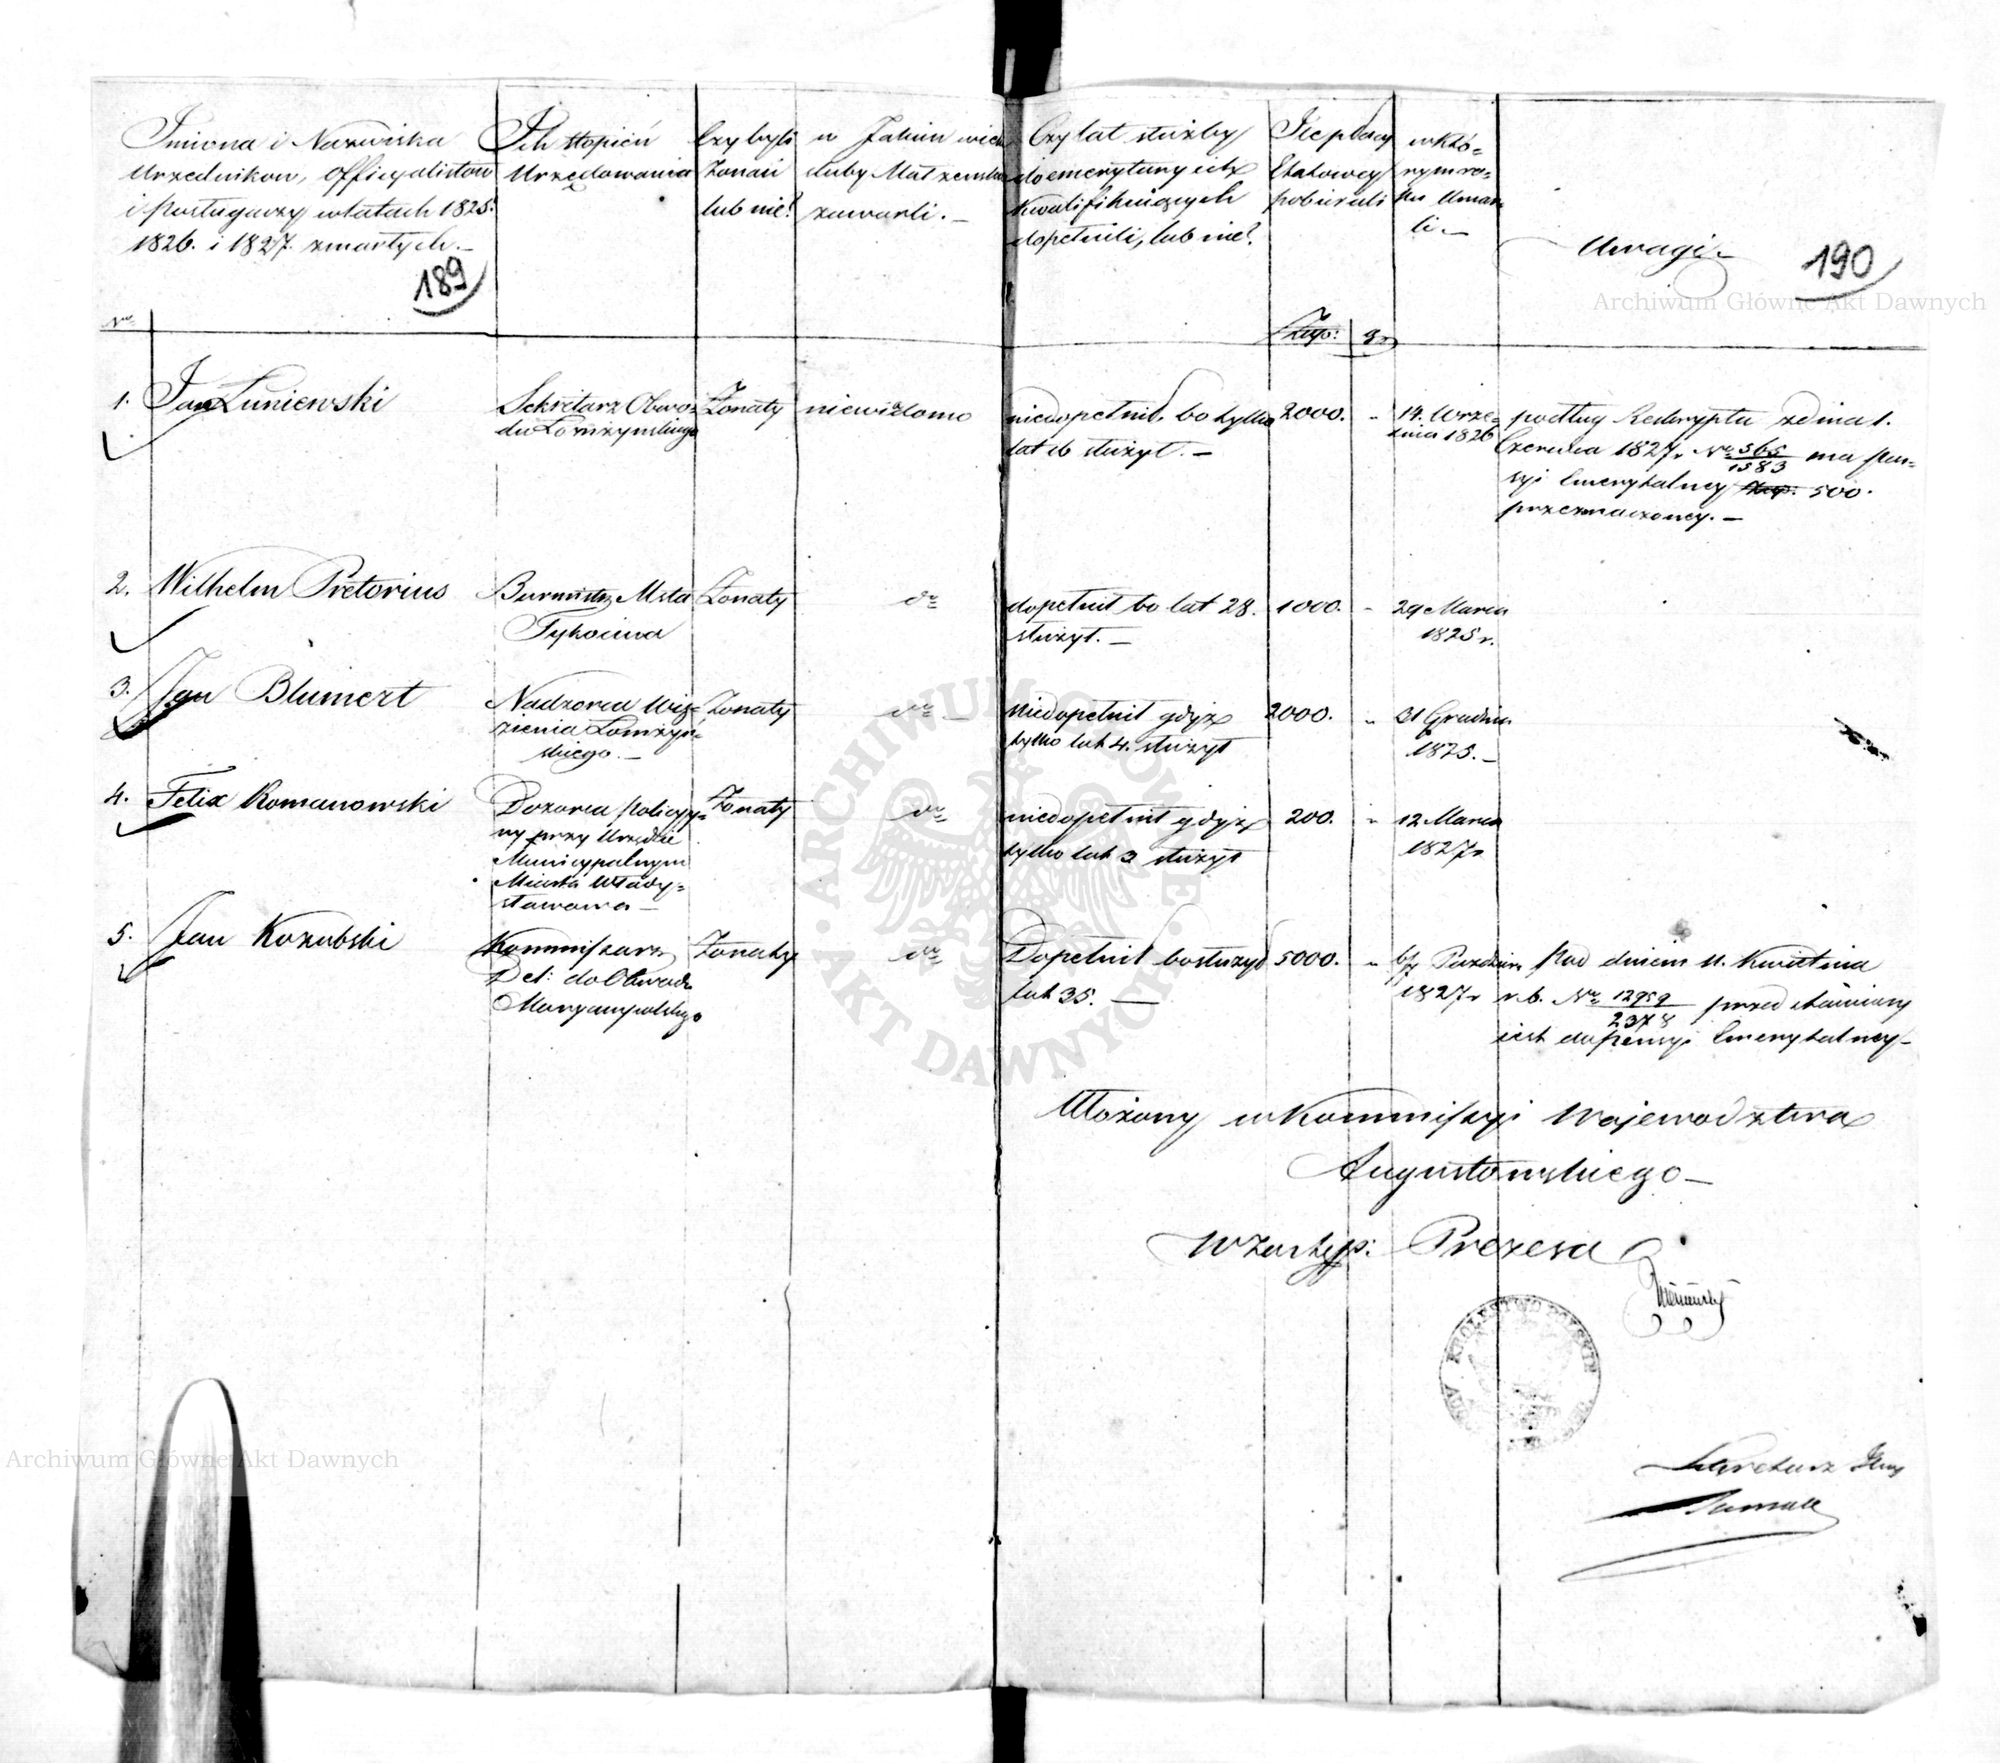 Imiona i Nazwiska
Urzednikow, Officyalistow
i Posługaczy w latach 1825.
1826. i 1827. zmarłych.—
189
Nro
Ich stopień
Urzędowania
Czy byli
Żonaci
lub nie?
w Jakim wieku
śluby Małżeńskie
zawarli.—
Czy lat służby
do emerytury ich
kwalifikuiących
dopełnili, lub nie?
Ile płacy
Etatowey
pobierali
Złtp: gr
w któ=
rym ro=
ku umar
li.—
Uwagi.—
190
Archiwum Główne Akt Dawnych
1. Jan Łuniewski
Sekretarz Obwo=
du Łomżyńskiego
Żonaty
niewiadomo
niedopełnił, bo tylko
lat 16 służył.—
2000. -
14. Wrze=
śnia 1826
podług Reskryptu z dnia 1.
Czerwca 1827 r. Nro 565/1583 ma pen=
syi Emerytalney 500.
przeznaczoney.—
2. Wilhelm Pretorius
Burmistrz Msta
Tykocina
Żonaty
dto
dopełnił bo lat 28.
służył.—
1000. -
29 Marca
1825 r.
3. Jan Blumert
Nadzorca Wię=
zienia Łomżyń=
skiego.—
Żonaty
dto —
niedopełnił gdyż
tylko lat 4. służył
2000. -
31 Grudnia
1825.—
4. Felix Romanowski
Dozorca policyy=
ny przy Urzędzie
Municypalnym
Miasta Włady=
sławowa—
Żonaty
dto
niedopełnił gdyż
tylko lat 3 służył
200. -
12 Marca
1827 r
5. Jan Kozubski
Kommissarz
Del: do Obwodu
Maryampolskiego
Żonaty
dto
Dopełnił bo służył
lat 35.—
5000. -
Paździer
1827 r
Pod dniem 11. Kwietnia
r. b. Nro 12959/2378 przedstawiony
iest do pensyi Emerytalney—
Ułożony w Kommissyi Woiewodztwa
Augustowskiego—
W Zastęp: Prezesa
KROLESTWO POLSKIE
Sekretarz Jlny
ARCHIWUM GŁÓWNE
AKT DAWNYCH
Archiwum Główne Akt Dawnych